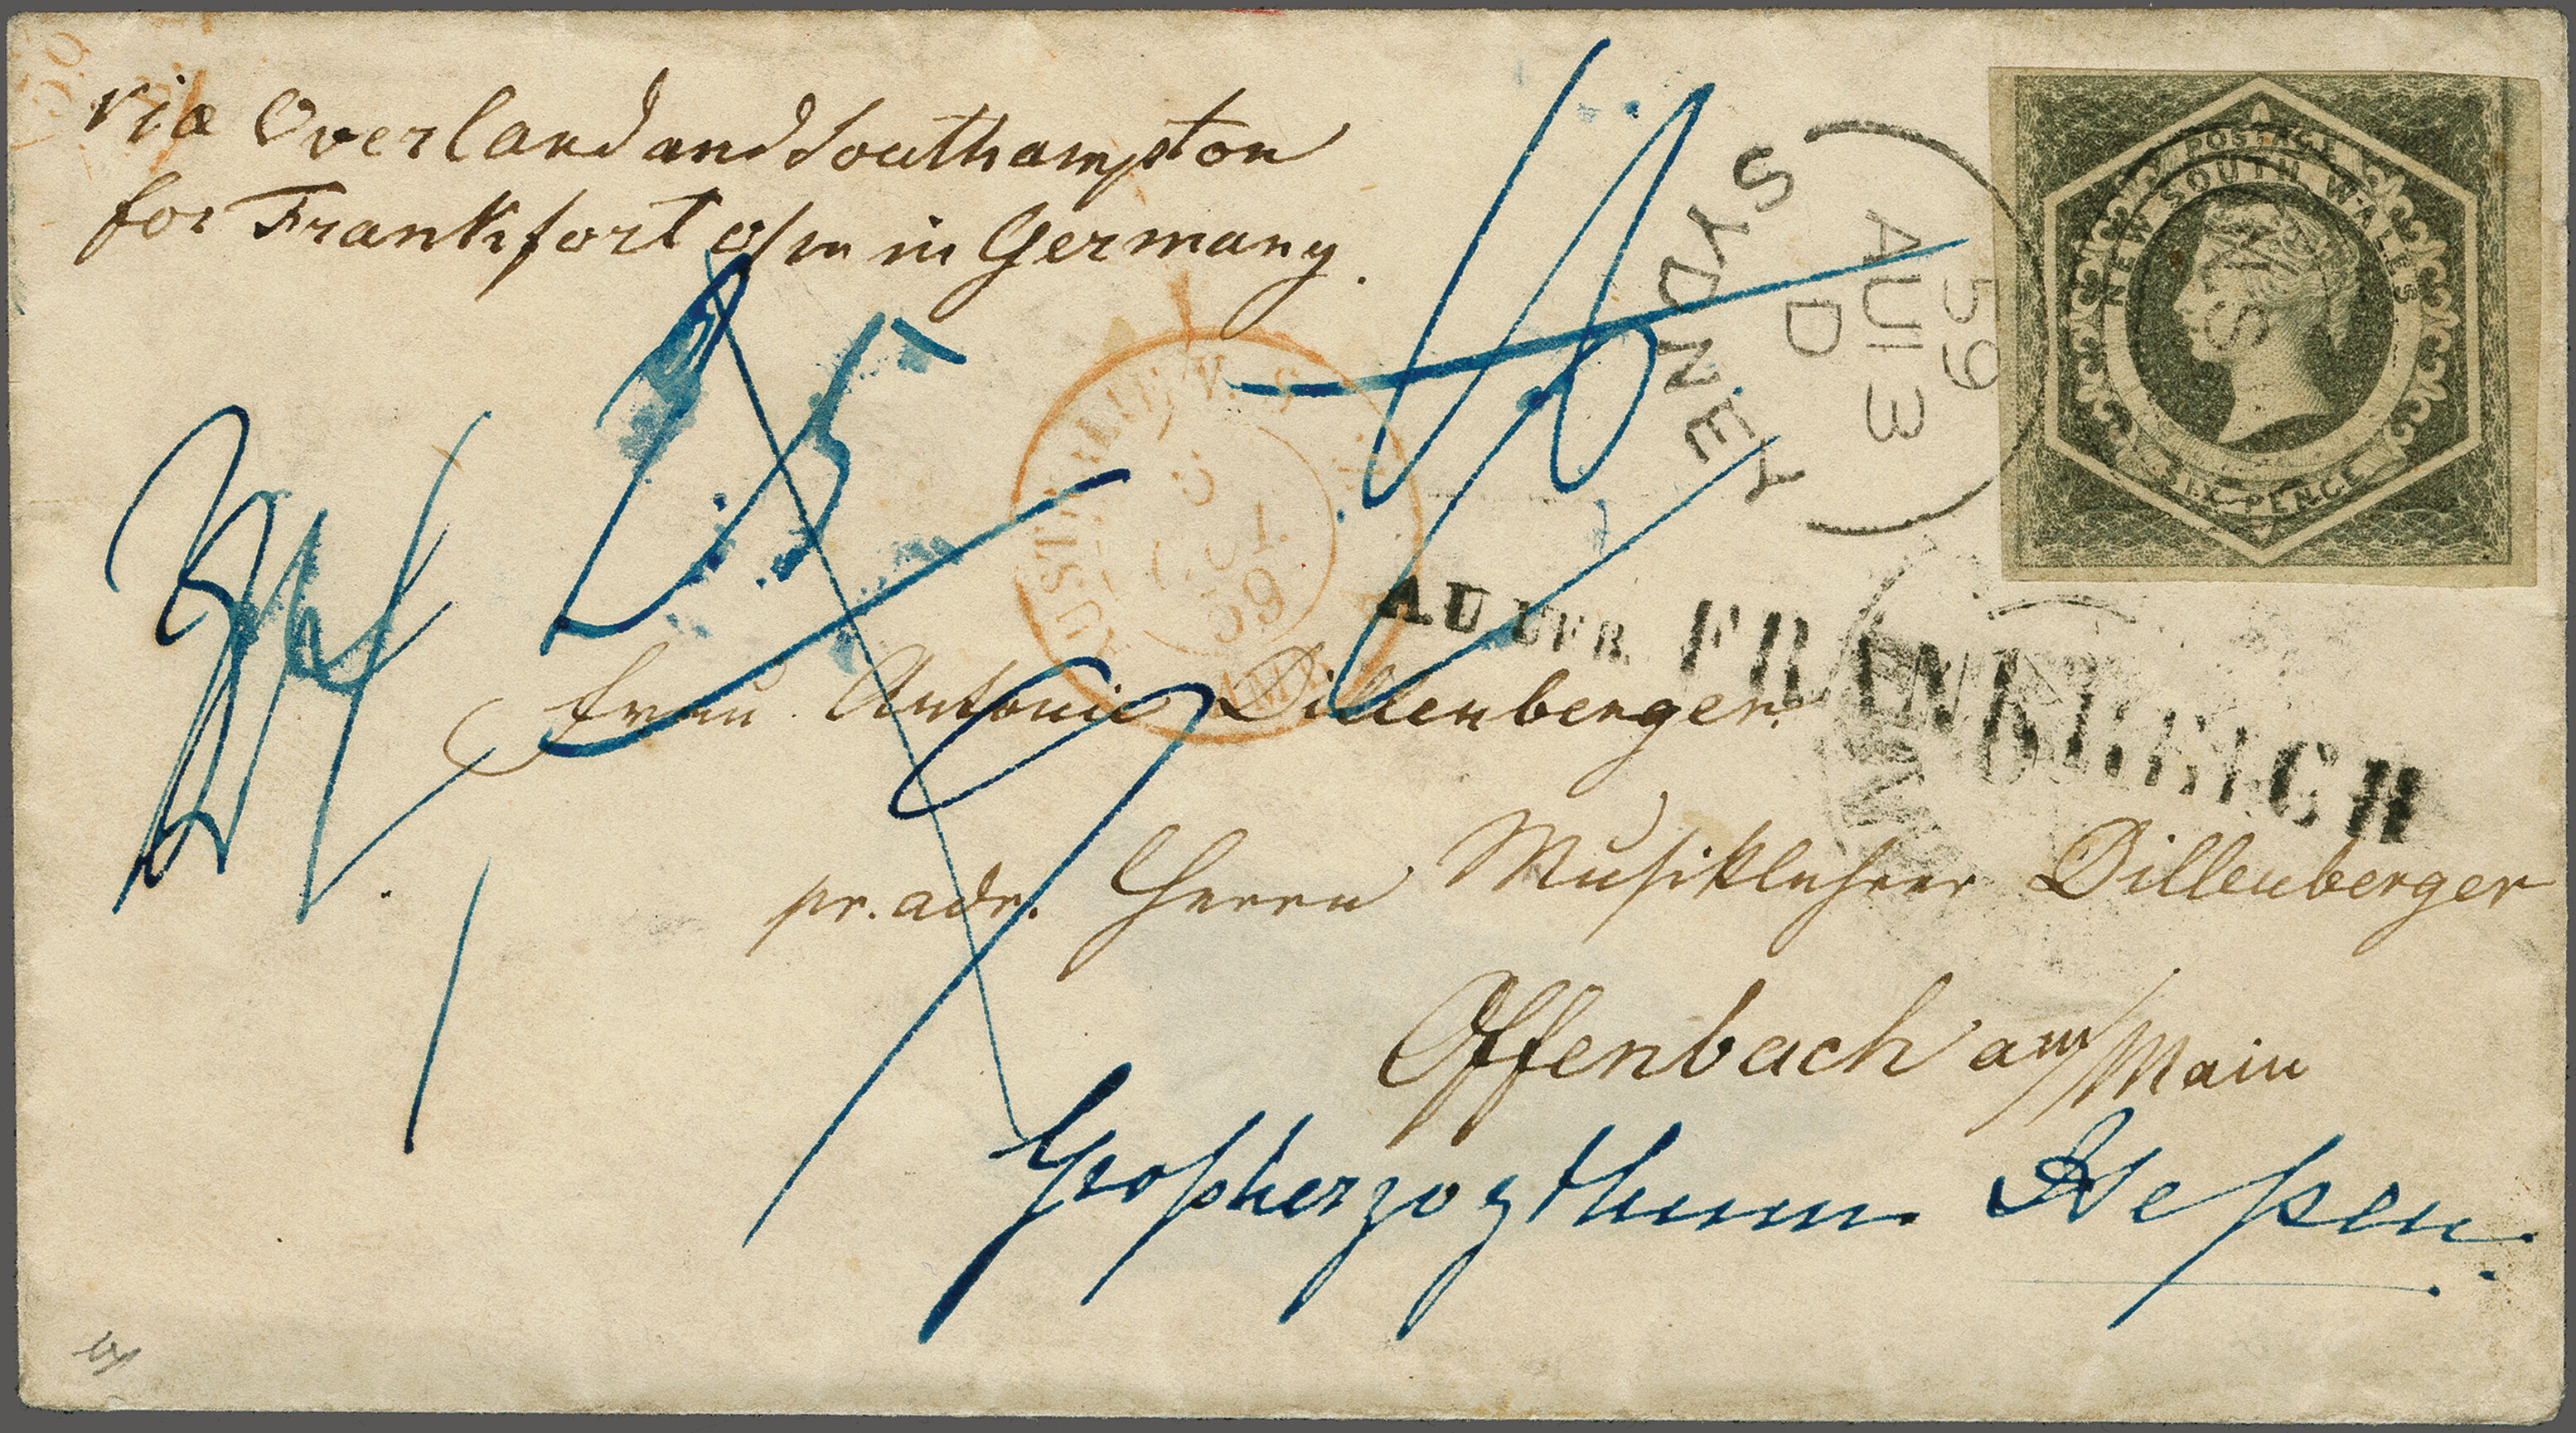 via Overland and Southampton
for Frankfort o/m in Germany.
SYDNEY
D
AU 13
59
POSTAGE
NEW SOUTH WALES
SIX PENCE
NSW
OCT
59
AUS UFR. FRANKREICH
Frau Antonie Dillenberger.
pr. adr. Herrn Musiklehrer Dillenberger
Offenbach am/Main
Großherzogthum Heßen.